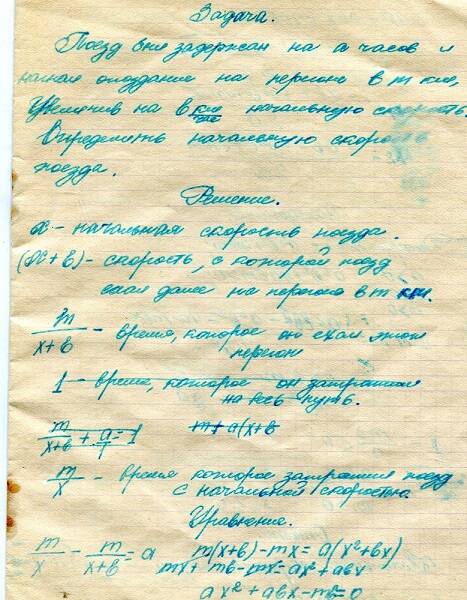 Задача.
Поезд был задержан на а часов и
нагнал опоздание на перегоне в m км,
Увеличив на в км/час начальную скорость.
Определить начальную скорость
поезда.
Решение.
x - начальная скорость поезда.
(x + в) - скорость, с которой поезд
ехал далее на перегоне в m км.
m/(x+в) - время, которое он ехал этот
перегон
1 - время, которое он затратил
на весь путь.
m/(x+в) + a/1 = 1 m+a(x+в
m/x - время которое затратил поезд
с начальной скоростью
Уравнение.
m/x - m/(x+в) = a m(x+в) - mx = a(x²+вx)
mx + mв - mx = ax² + aвx
ax² + aвx - mв = 0